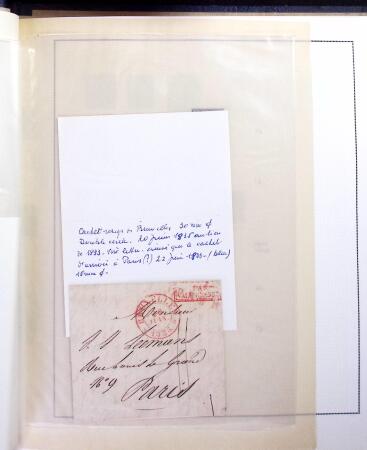 Cachet rouge de Bruxelles 30 mm ø
Double cercle. 20 juin 1835 au lieu
de 1833. Voir lettre. ainsi que le cachet
d'arrivée à Paris (?) 22 juin 1833 - (bleu)
BRUXELLES
PAR
VALENCIENNES
Monsieur
Rue Louis le Grand
N° 9
Paris